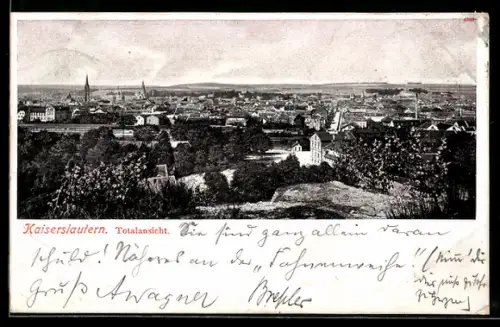 Kaiserslautern. Totalansicht. Sie sind ganz allein daran
schuld! Näheres an der „Fahnenweihe“! (Nun! die
Gruß A Wagner Bressler